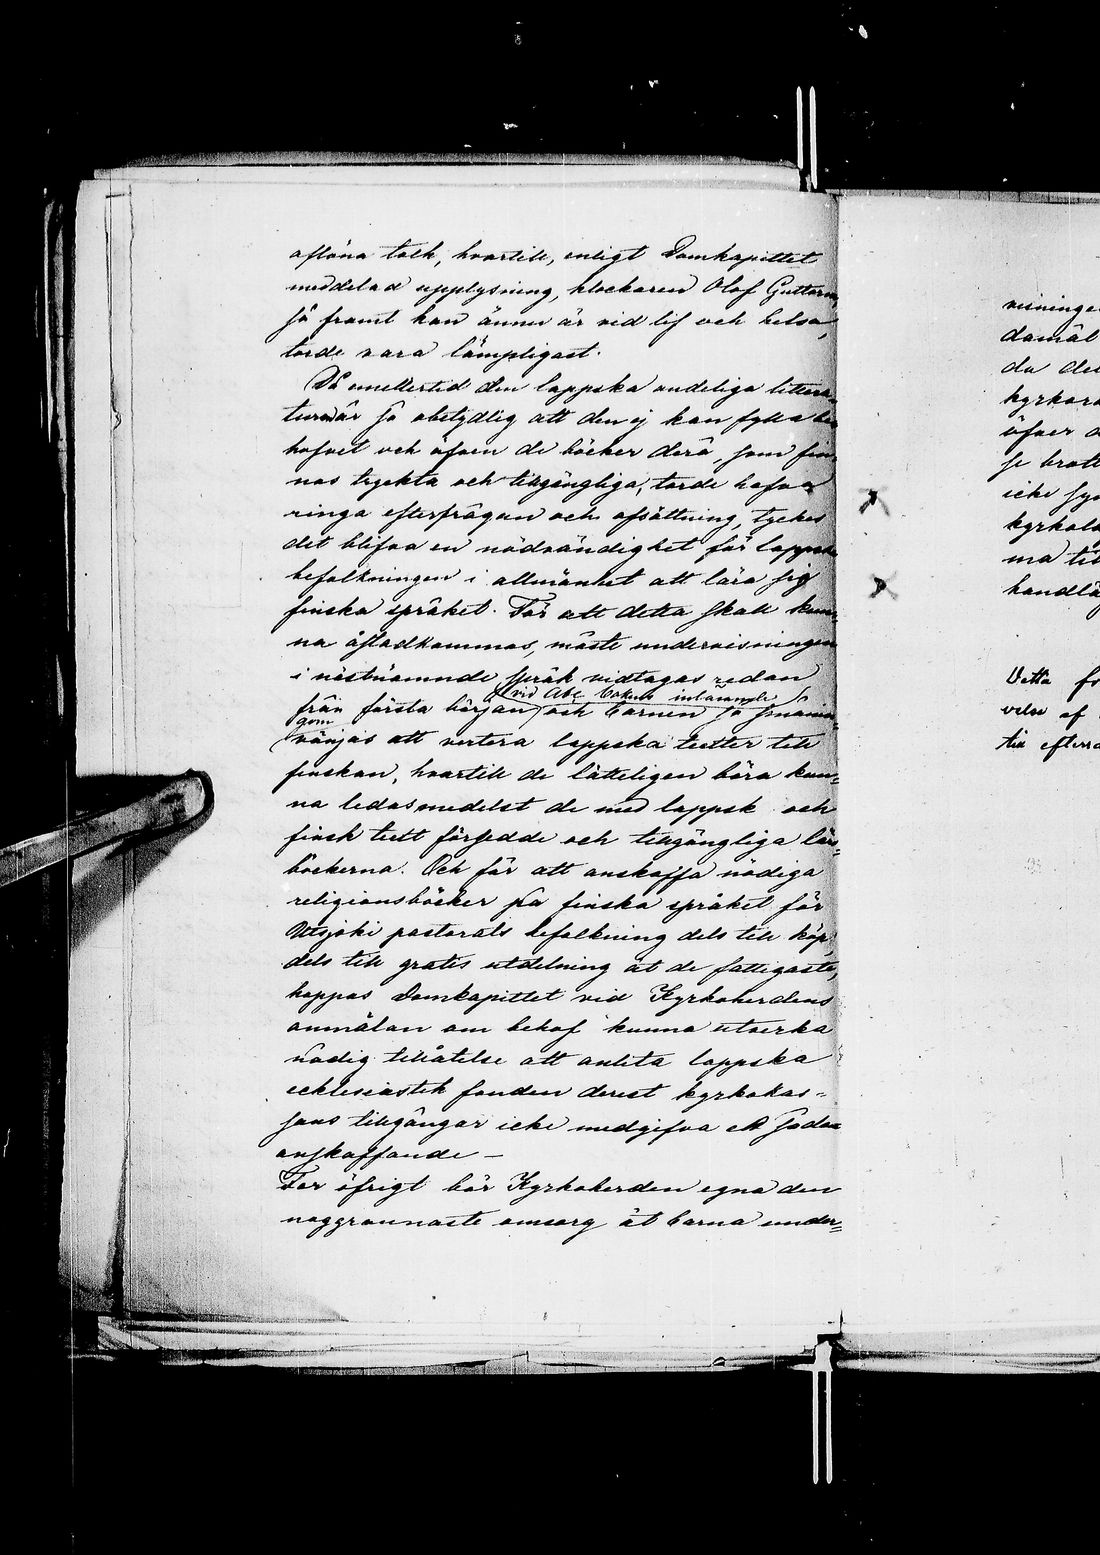 aflöna tolk, hvartill, enligt Domkapitlet
meddelad upplysning, klockaren Olof Guttorm,
så framt han ännu är vid lif och helsa,
torde vara lämpligast.
Då emellertid den lappska andeliga littera-
turen är så obetydlig att den ej kan fylla be-
hofvet och äfven de böcker derå, som fin-
nas tryckta och tillgängliga, torde hafva
ringa efterfrågan och afsättning, tyckes
det blifva en nödvändighet för lappska
befolkningen i allmänhet att lära sig
finska språket. För att detta skall kun-
na åstadkommas, måste undervisningen
i nästnämnde språk vidtagas redan
från första början (vid Abc bokens inlärande) och barnen så smånin-
gom vänjas att vertera lappska texter till
finskan, hvartill de lätteligen böra kun=
na ledas medelst de med lappsk och
finsk text försedde och tillgängliga lär=
böckerna. Och för att anskaffa nödiga
religionsböcker på finska språket för
Utsjoki pastorats befolkning dels till köp,
dels till gratis utdelning åt de fattigaste,
hoppas Domkapitlet vid Kyrkoherdens
anmälan om behof kunna utverka
nådig tillåtelse att anlita lappska
ecklesiastik fonden derest kyrkokas=
sans tillgångar icke medgifva ett sådan
anskaffande –
För öfrigt bör Kyrkoherden egna den
noggrannaste omsorg åt barna under=
visninge
damål
da de
kyrkora
öfver
se brott
icke
kyrkola
ma till
handlä
Detta
velse af
till efterr